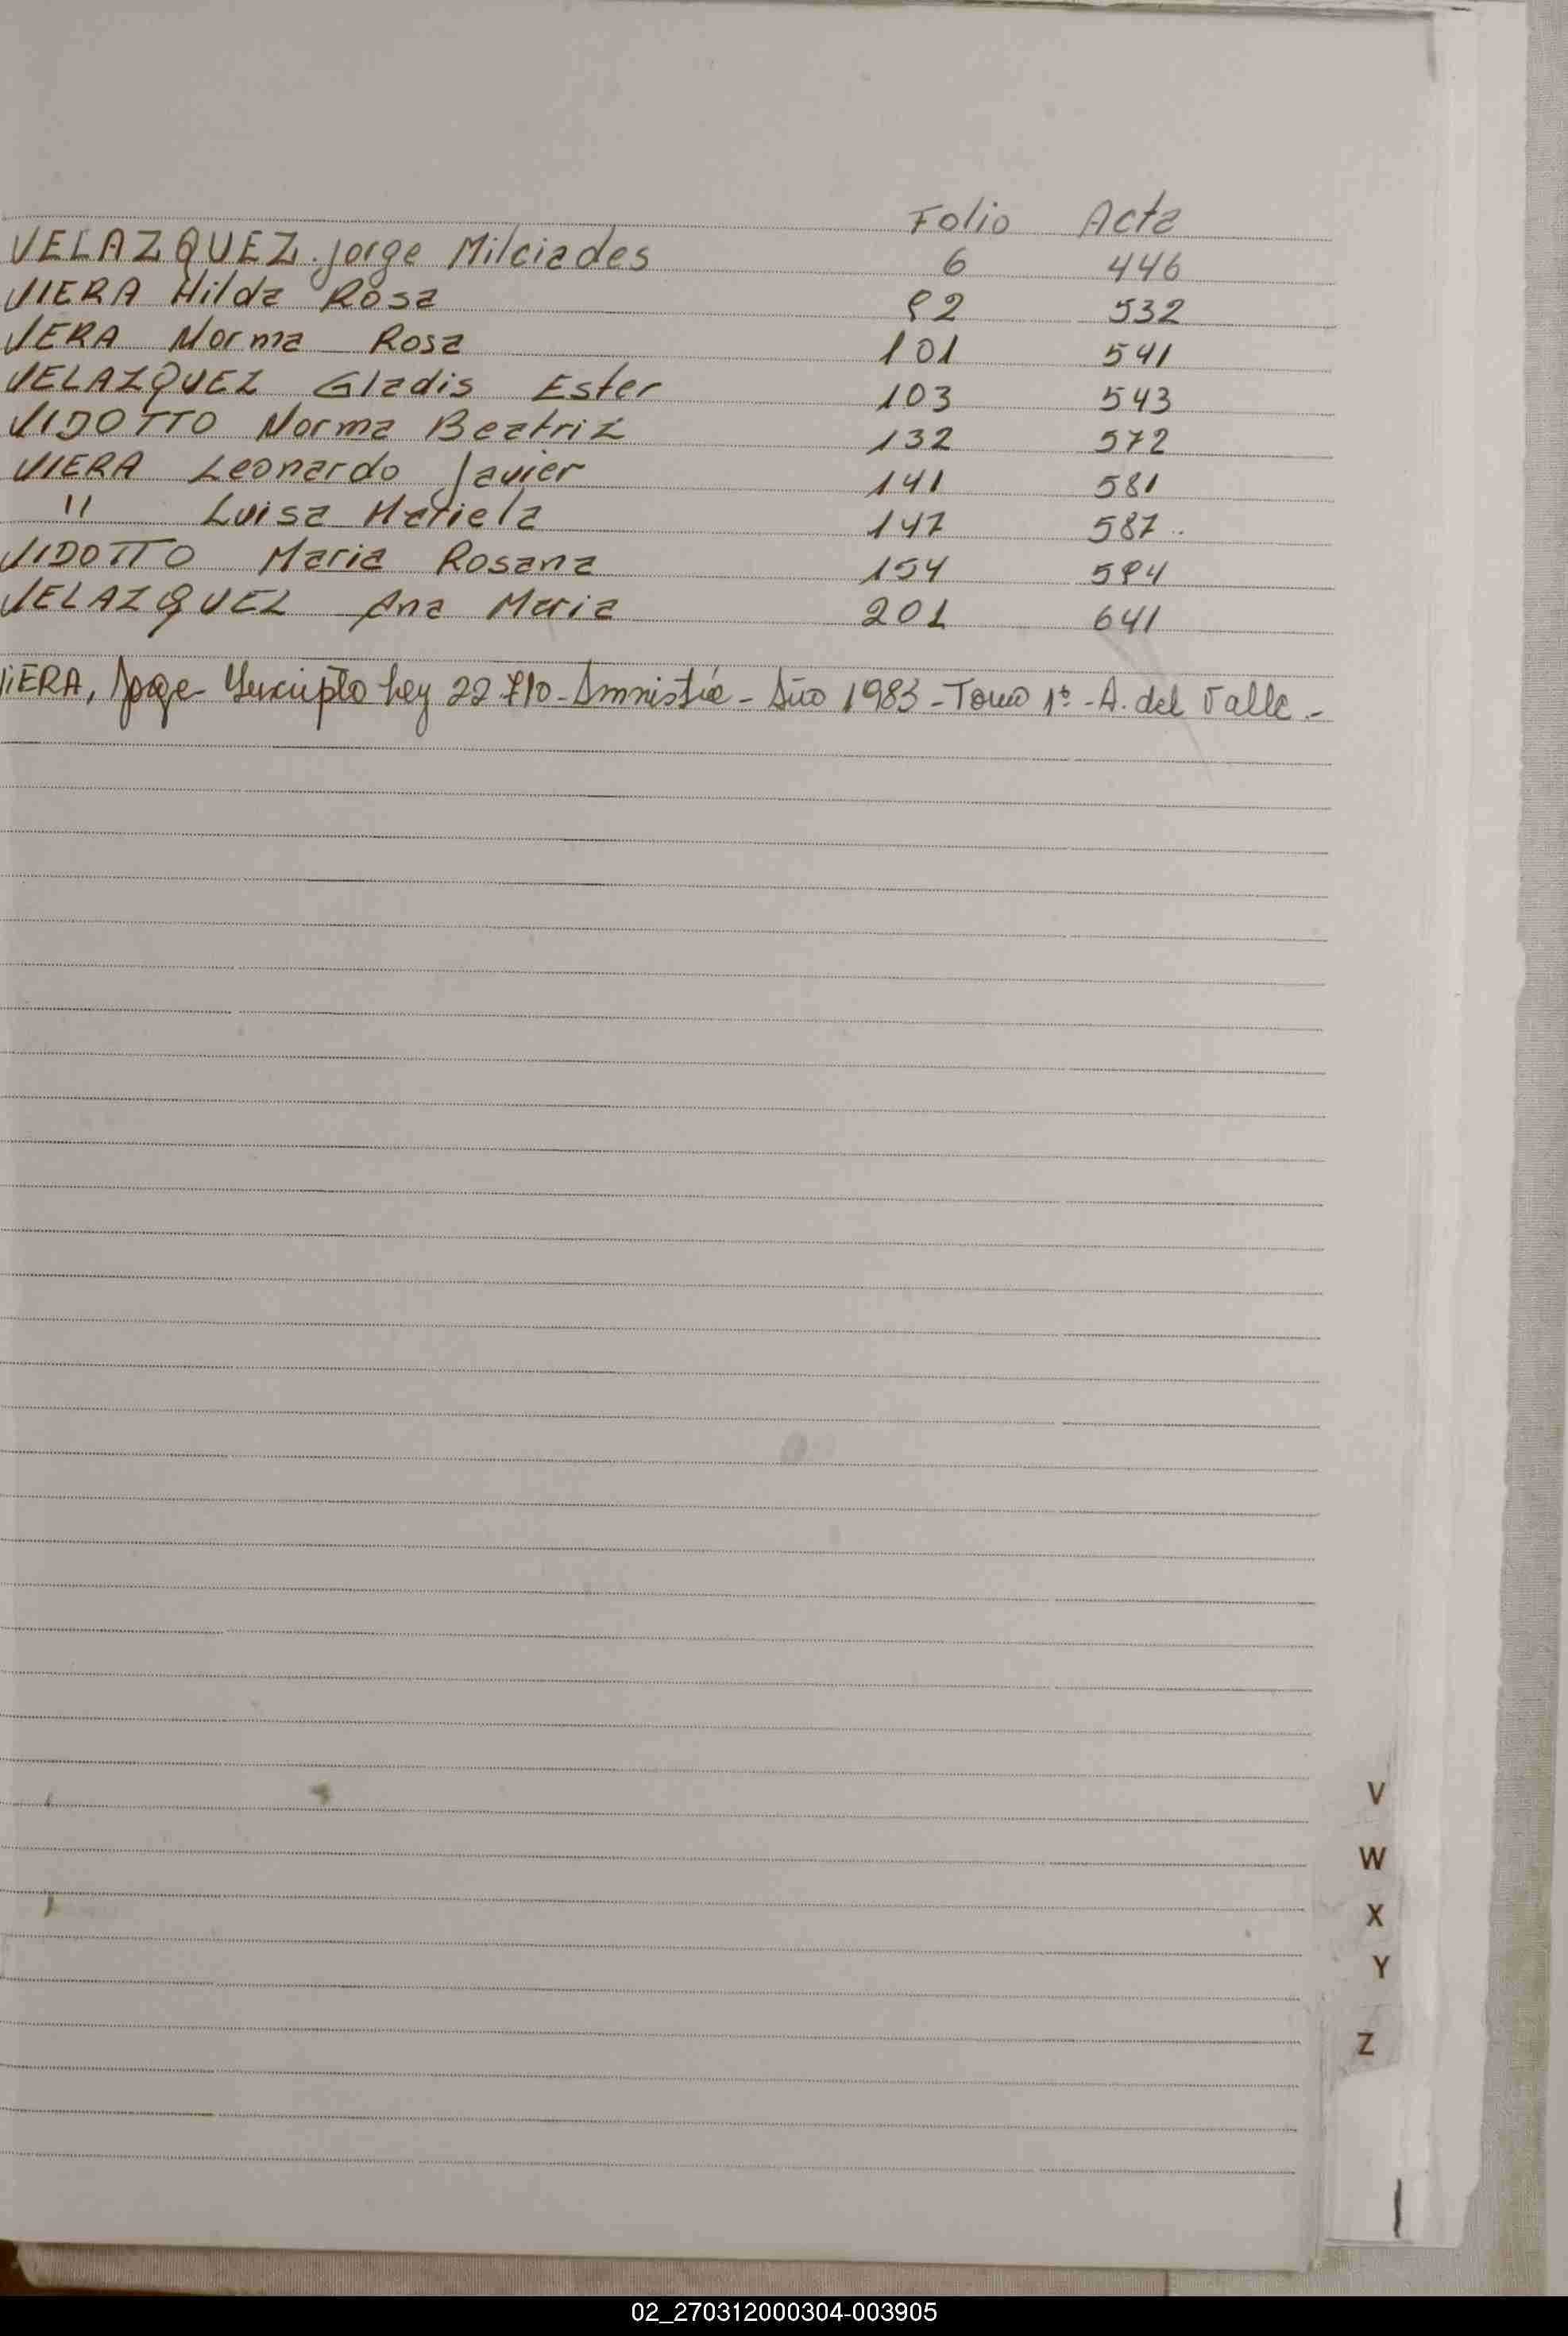 Folio Acta
VELAZQUEZ. Jorge Milciades 6 446
VIERA Hilda Rosa 92 532
VERA Norma Rosa 101 541
VELAZQUEZ Gladis Ester 103 543
VIDOTTO Norma Beatriz 132 572
VIERA Leonardo Javier 141 581
" Luisa Mariela 147 587
VIDOTTO Maria Rosana 154 594
VELAZQUEZ Ana Maria 201 641
VIERA, Jorge - Inscripto Ley 22710 - Amnistía - Año 1983 - Tomo 1º - A. del Valle.-
V
W
X
Y
Z
02_270312000304-003905